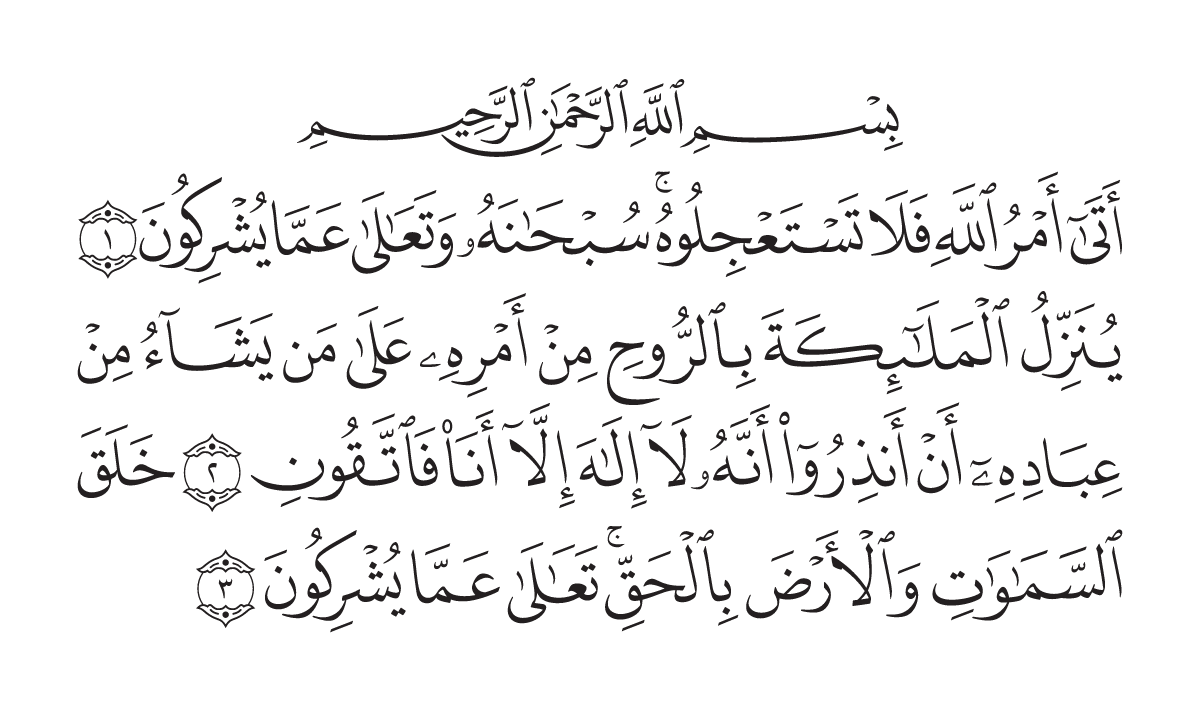 بِسْمِ ٱللَّهِ ٱلرَّحْمَٰنِ ٱلرَّحِيمِ
أَتَىٰٓ أَمْرُ ٱللَّهِ فَلَا تَسْتَعْجِلُوهُ ۚ سُبْحَٰنَهُۥ وَتَعَٰلَىٰ عَمَّا يُشْرِكُونَ ١
يُنَزِّلُ ٱلْمَلَٰٓئِكَةَ بِٱلرُّوحِ مِنْ أَمْرِهِۦ عَلَىٰ مَن يَشَآءُ مِنْ
عِبَادِهِۦٓ أَنْ أَنذِرُوٓا۟ أَنَّهُۥ لَآ إِلَٰهَ إِلَّآ أَنَا۠ فَٱتَّقُونِ ٢ خَلَقَ
ٱلسَّمَٰوَٰتِ وَٱلْأَرْضَ بِٱلْحَقِّ ۚ تَعَٰلَىٰ عَمَّا يُشْرِكُونَ ٣